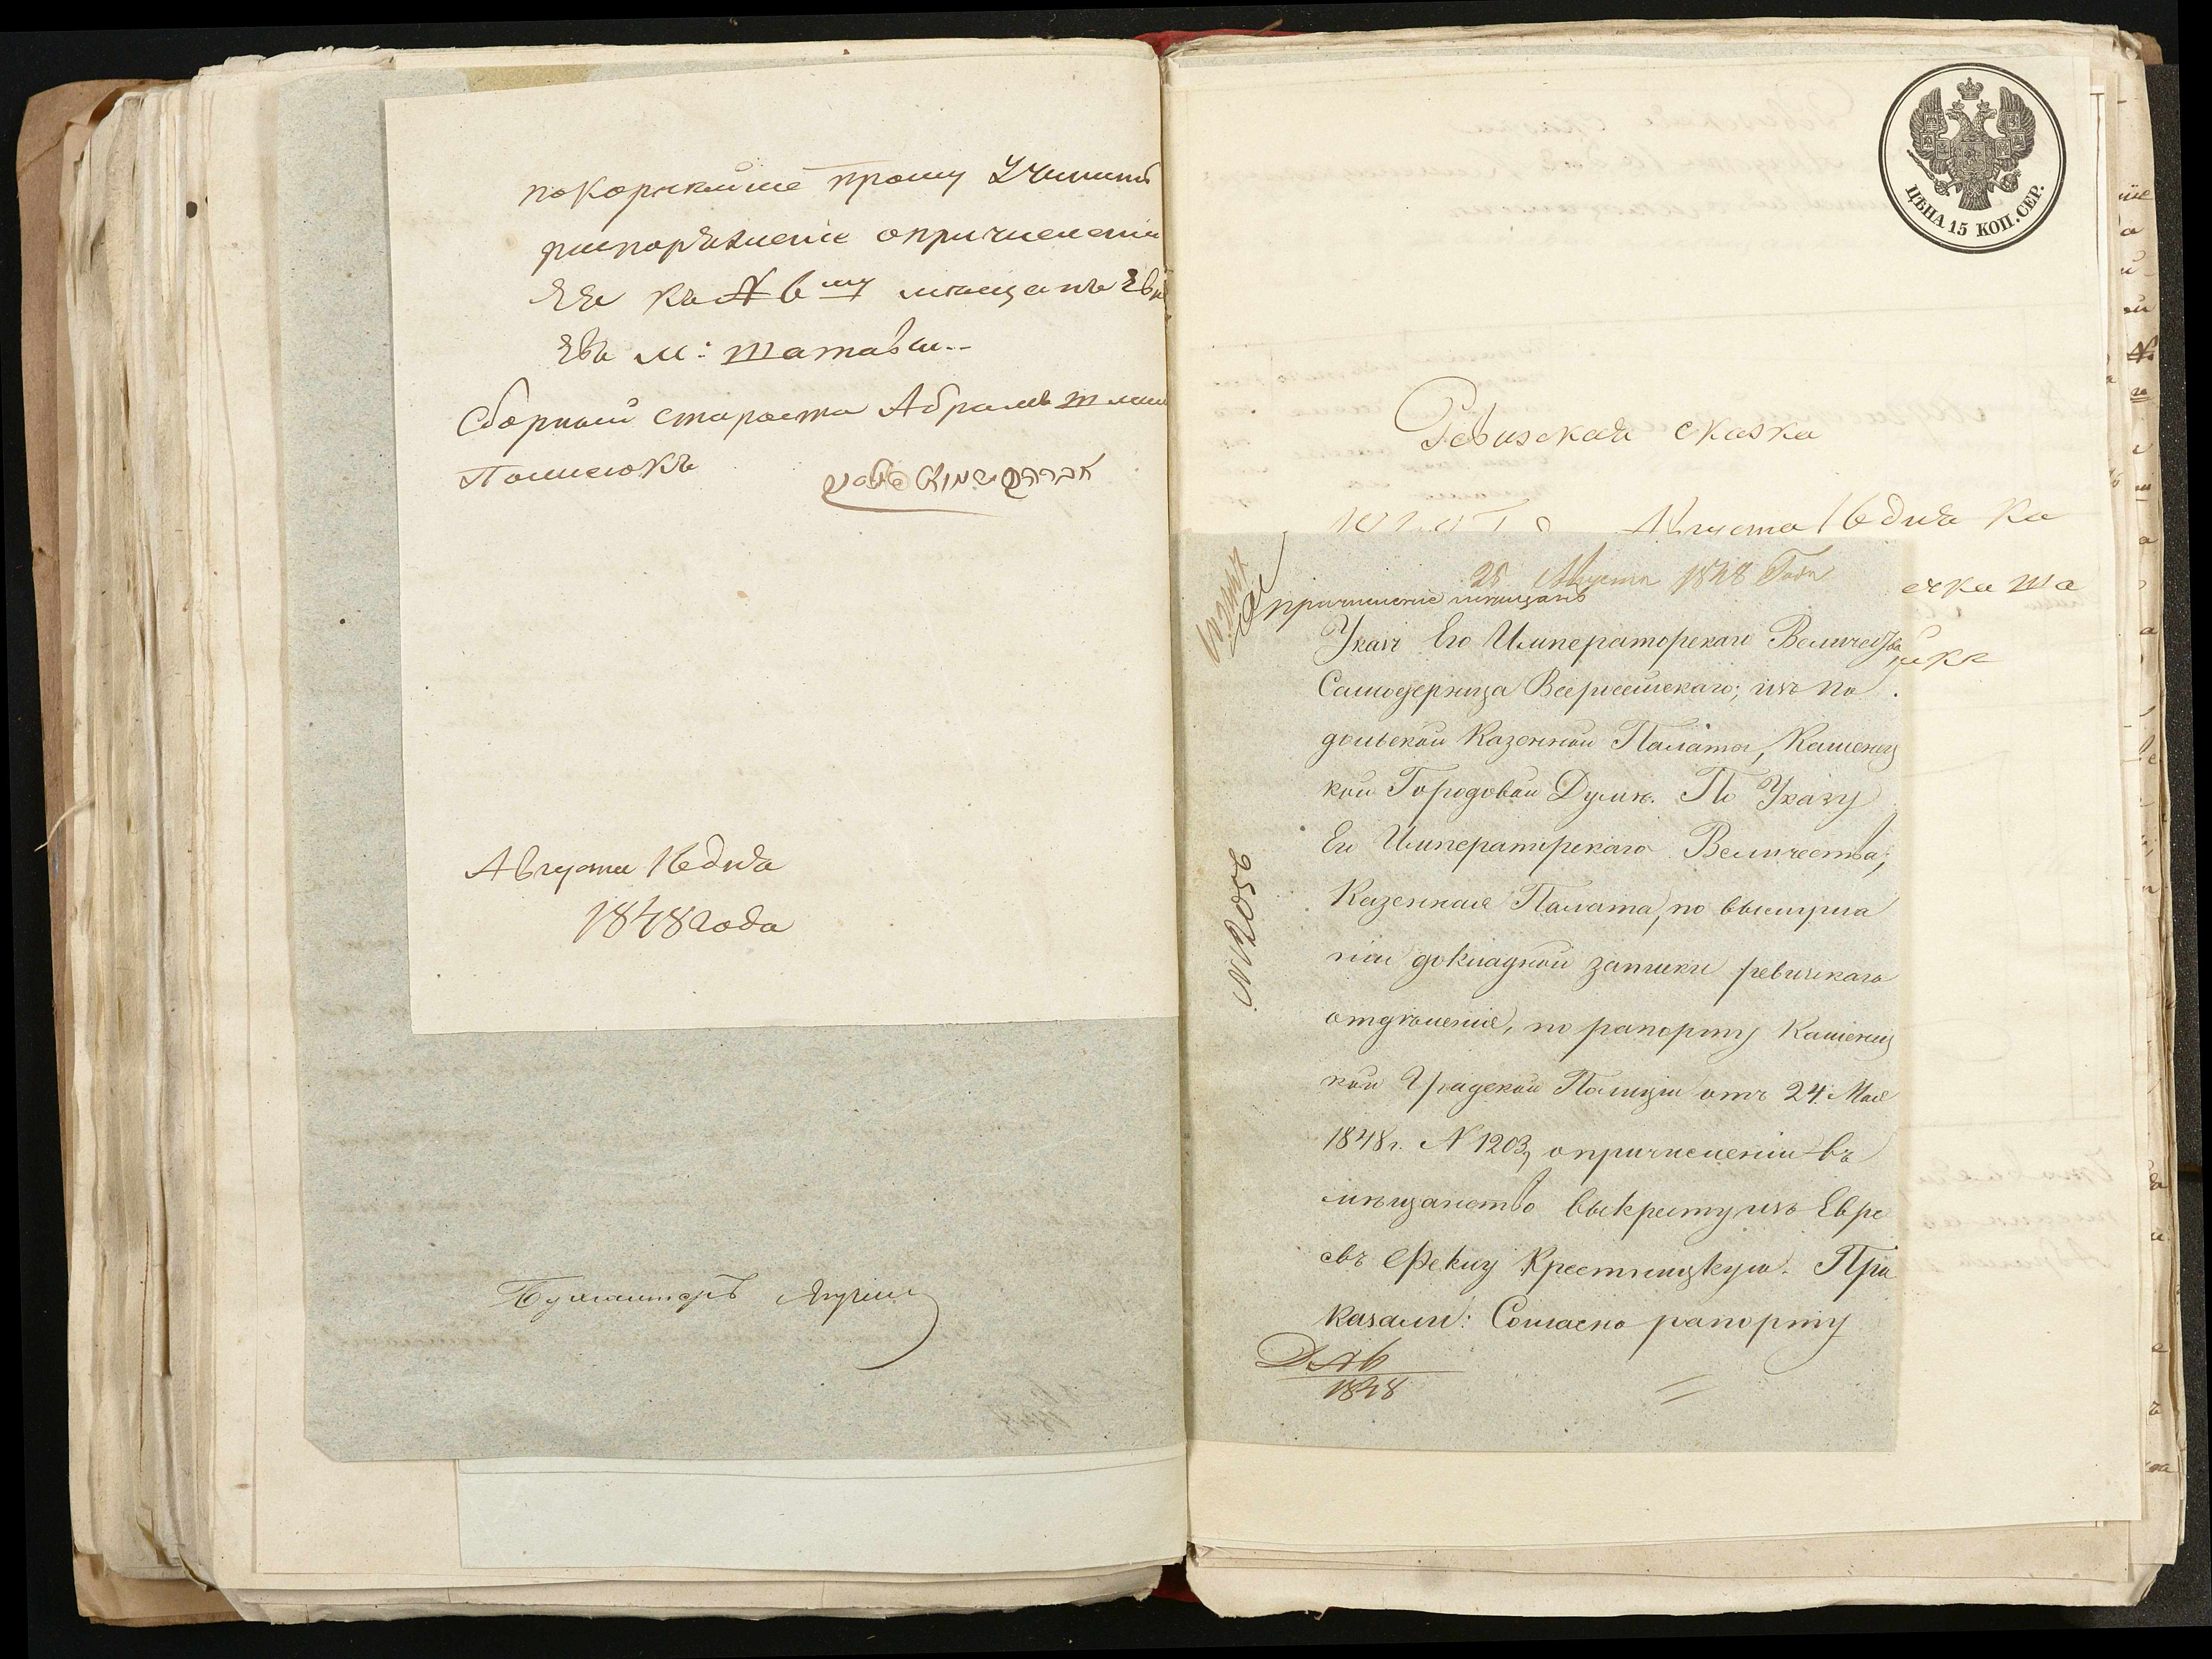 покорнейше прошу Учинить
распоряжение опричислении
Ея къ № 6му мещанъ Евре
Евъ м: Шатавы..
Сборный староста Абрамъ Шлим
Полисюкъ
Августа 16 дня
1848 года
Бухгалтеръ
ЦѢНА 15 КОП. СЕР.
Ревизская сказка
Августа 16 дня Ка
ечка Ша
25 Августа 1848 Года
причисление мещанъ
Указъ Его Императорскаго Величества,
Самодержца Всероссійскаго; изъ По
дольской Казенной Палаты, Каменец
кой Городовой Думѣ. По Указу
Его Императорскаго Величества;
Казенная Палата, по выслуша
ніи докладной записки ревизскаго
отдѣленія, по рапорту Каменец
кой Градской Полиціи отъ 24 Мая
1848 г. N 1203, опричисленіи въ
мѣщанство выкресту изъ Евре
евъ Феклу Крестницкую. При
казали: Согласно рапорту
N 12056
1848